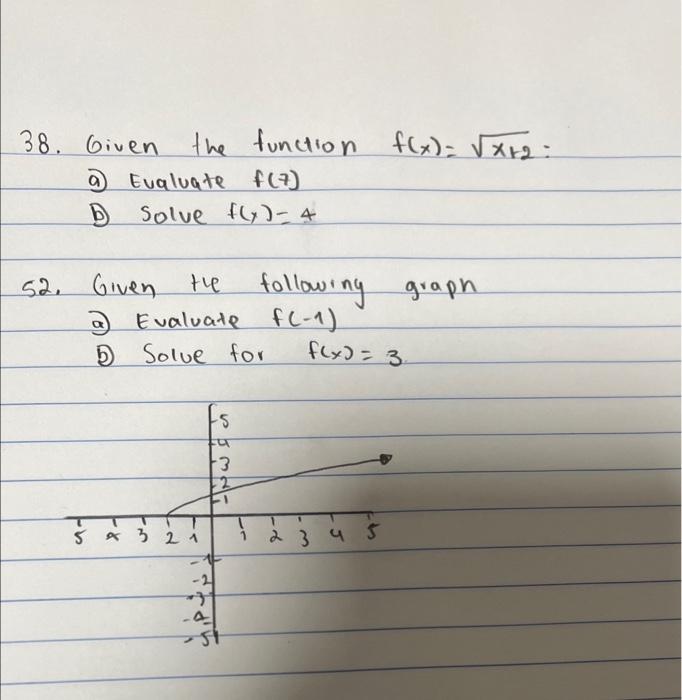 38. Given the function f(x)= √x+2:
a) Evaluate f(7)
b) Solve f(x)= 4
52. Given the following graph
a) Evaluate f(-1)
b) Solve for f(x) = 3.
5
4
3
2
1
5 4 3 2 1 1 2 3 4 5
-1
-2
-3
-4
-5